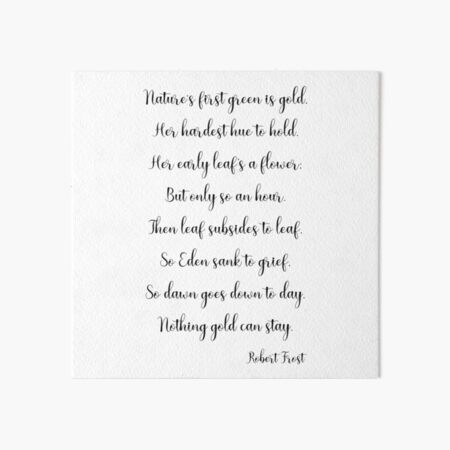 Nature's first green is gold.
Her hardest hue to hold.
Her early leaf's a flower;
But only so an hour.
Then leaf subsides to leaf.
So Eden sank to grief.
So dawn goes down to day.
Nothing gold can stay.
Robert Frost